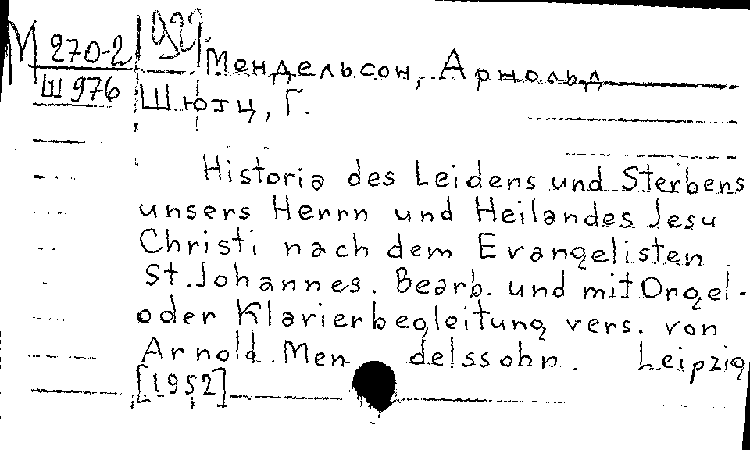 М 270-2
Ш 976
Мендельсон, Арнольд
Шютц, Г.
Historia des Leidens und Sterbens
unsers Herrn und Heilandes Jesu
Christi nach dem Evangelisten
St. Johannes. Bearb. und mit Orgel-
oder Klavierbegleitung vers. von
Arnold Mendelssohn. Leipzig
[1952]